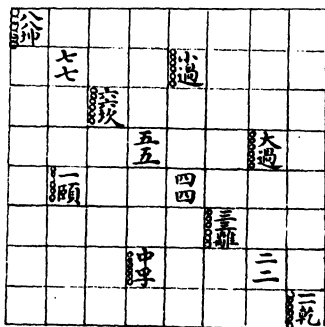 八八坤
七七 小過
六六坎
五五 大過
一頤 四四
三三離
中孚 二二
一一乾